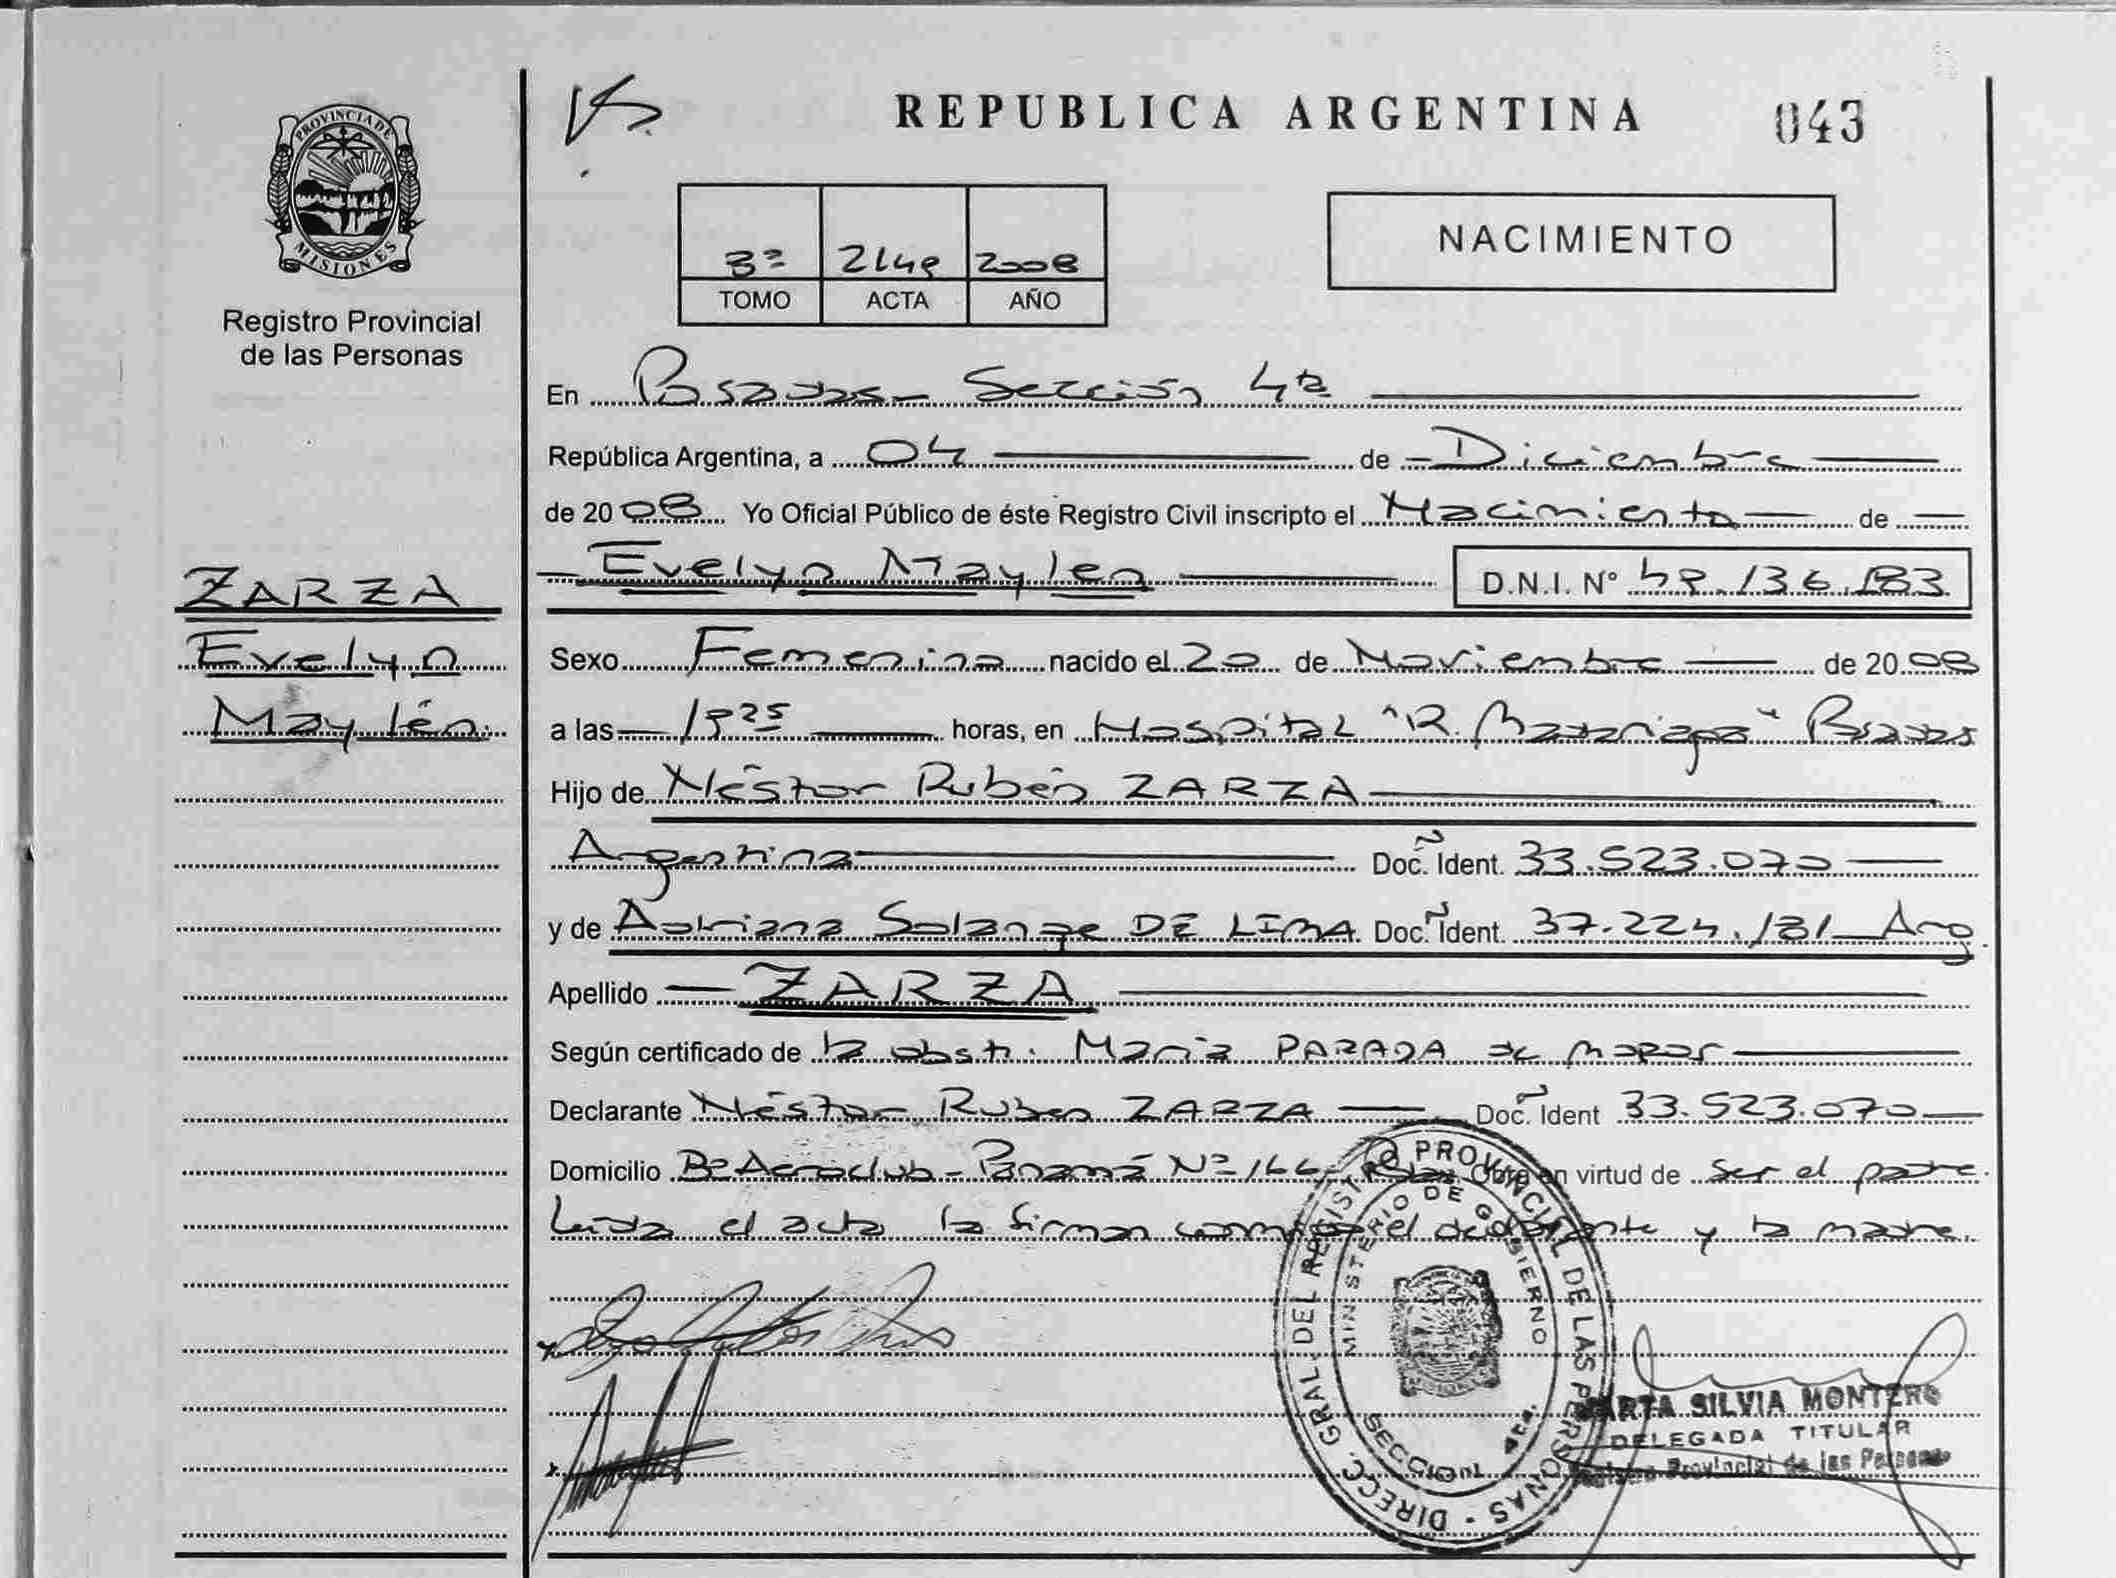 REPUBLICA ARGENTINA
043
PROVINCIA DE MISIONES
Registro Provincial
de las Personas
3º 2008
TOMO ACTA AÑO
NACIMIENTO
En Posadas - Sección 4ta
República Argentina, a 04 de Diciembre
de 2008 Yo Oficial Público de éste Registro Civil inscripto el Nacimiento de
Evelyn Maylen D.N.I. Nº
ZARZA
Evelyn
Maylén.
Sexo Femenino nacido el 20 de Noviembre de 2008
a las horas, en Hospital "R. Madariaga" Posadas
Hijo de Néstor Rubén ZARZA
Argentina Doc. Ident. 33.523.070
y de Adriana Solange DE LIMA Doc. Ident. 37.224.181 Arg.
Apellido ZARZA
Según certificado de la obst. María PARADA de
Declarante Néstor Ruben ZARZA Doc. Ident 33.523.070
Domicilio Bº Aeroclub - Panamá Nº 166 - Obra en virtud de ser el padre.
Leída el acta la firman conmigo el declarante y la madre.
DIRECC. GRAL. DEL REGISTRO PROVINCIAL DE LAS PERSONAS
MINISTERIO DE GOBIERNO
SECCION 4ta.
MARTA SILVIA MONTERO
DELEGADA TITULAR
Registro Provincial de las Personas